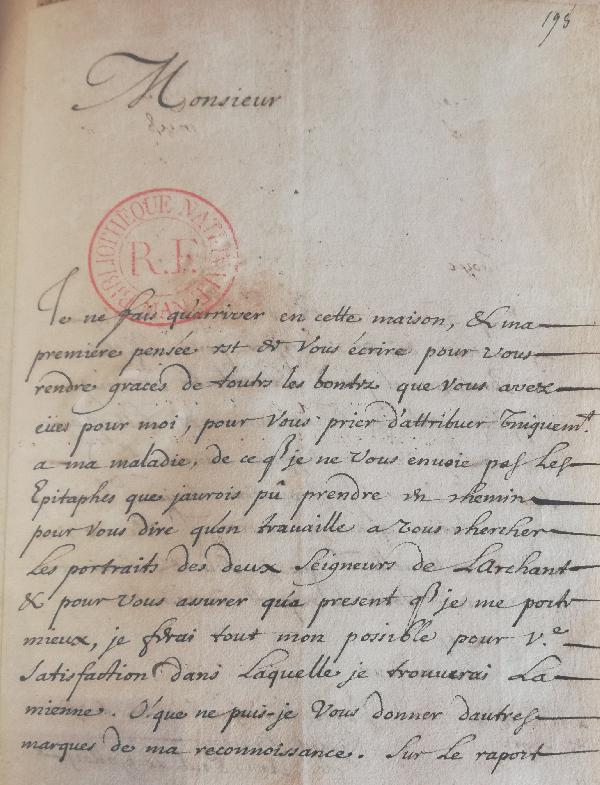 198
Monsieur
BIBLIOTHEQUE NATIONALE
R.F.
MAN
Je ne fais qu'arriver en cette maison, & ma
première pensée est de Vous écrire pour vous
rendre graces de toutes les bontez que vous avez
eües pour moi, pour Vous prier d'attribuer Uniquemt.
a ma maladie, de ce q. je ne Vous envoie pas les
Epitaphes que jaurois pû prendre en chemin
pour Vous dire qu'on travaille a vous chercher
les portraits des deux Seigneurs de LArchant
& pour vous assurer qu'a present q. je me porte
mieux, je ferai tout mon possible pour v.e
satisfaction dans laquelle je trouverai la
mienne. O que ne puis-je Vous donner dautres
marques de ma reconnoissance. Sur le raport